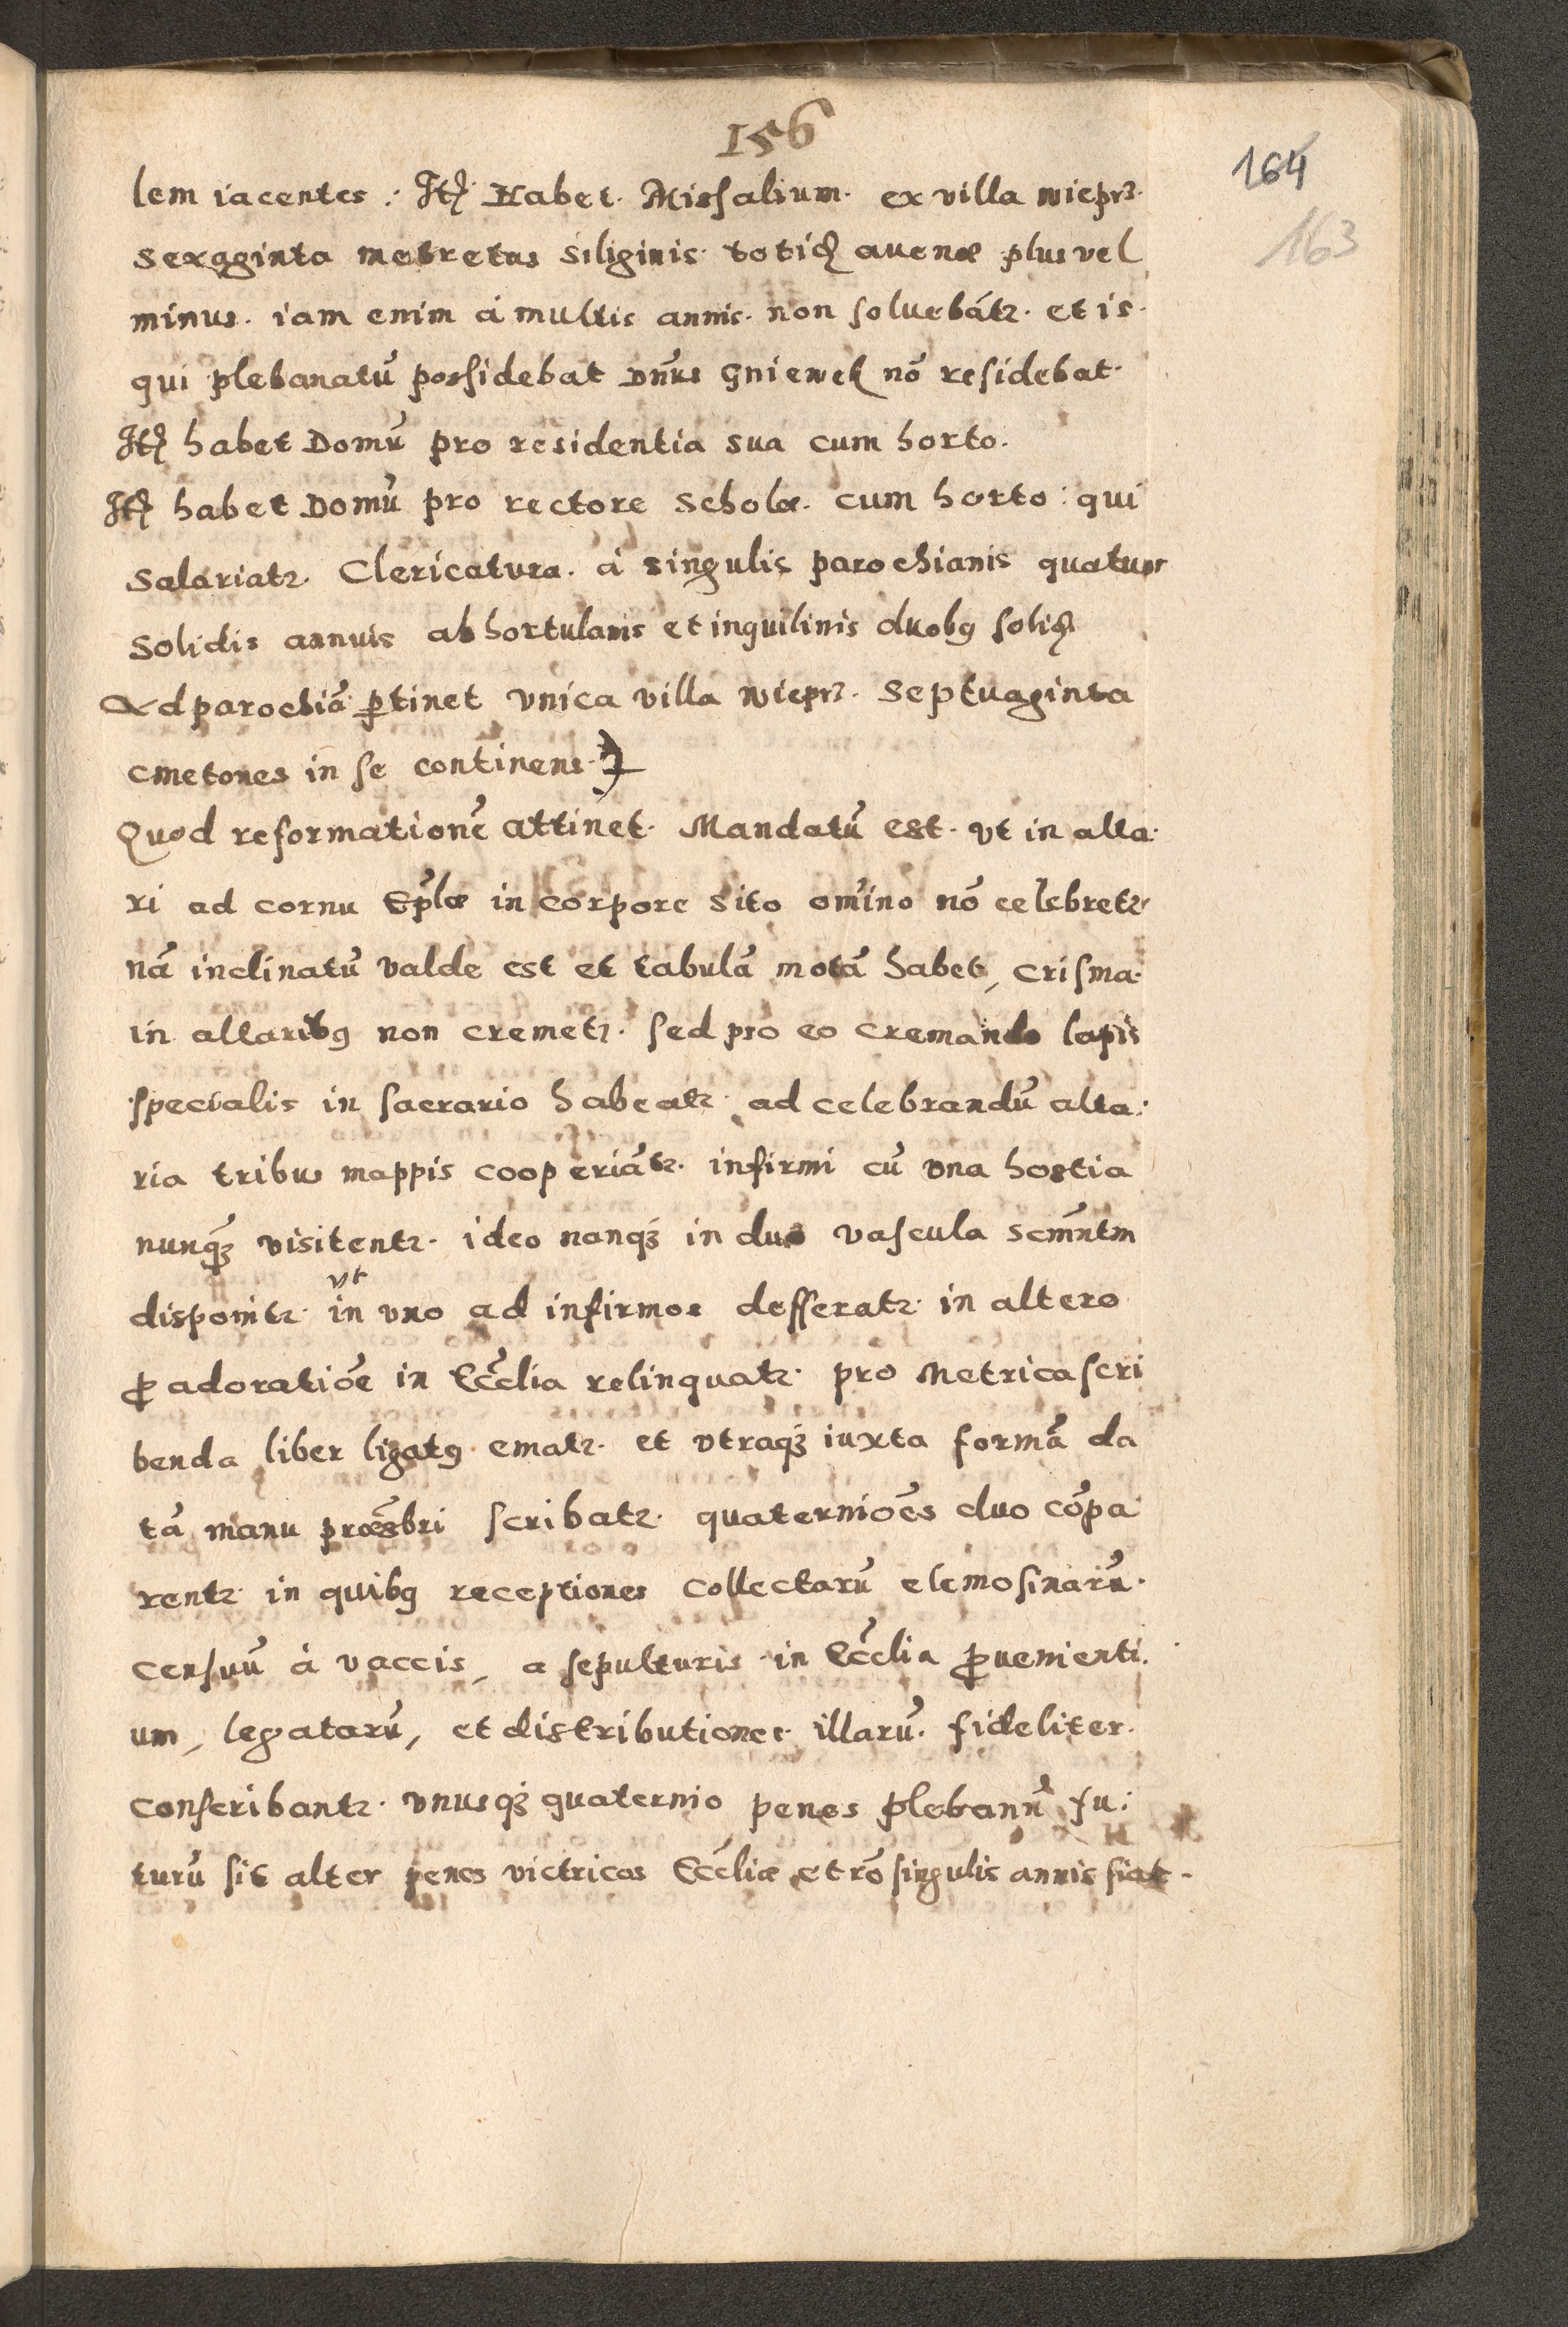 156
164
163
lem iacentes : Itē Habet. Missalium. ex villa wieprz.
sexaginta metretas siliginis. totidē auenæ plus vel
minus. iam enim à multis annis. non soluebātr. et is.
qui plebanatū possidebat Dn̄us Gniewek nō residebat.
Itē habet Domū pro residentia sua cum horto.
Itē habet Domū pro rectore scholæ. cum horto : qui
salariatr. Clericatura. à singulis parochianis quatuor
solidis annuis ab hortulanis et inquilinis duobꝰ solid.
Ad parochiā ꝑtinet vnica villa wieprz. septuaginta
cmetones in se continens.
Quod reformationē attinet. Mandatū est. vt in alta.
ri ad cornu Ep̄læ in corpore sito om̄ino nō celebretr
nā inclinatū valde est et tabulā motā habet, crisma.
in altaribꝰ non cremetr. sed pro eo cremando lapis
specialis in sacrario habeatr. ad celebrandū alta:
ria tribus mappis cooperiātr. infirmi cū vna hostia
nunqꝫ visitentr. ideo nanqꝫ in duo vascula scm̄ntm
disponitr. vt in vno ad infirmos defferatr. in altero
ꝓ adoratiōe in Ecc̄lia relinquatr. pro Metrica scri
benda liber ligatꝰ ematr. et vtraqꝫ iuxta formā da
tā manu præsb̄ri scribatr. quaterniōes duo cōpa
rentr. in quibꝰ receptiones collectarū elemosinarū.
censuū à vaccis, a sepulturis in Ecc̄lia ꝓuenienti.
um, legatarū, et distributiones. illarū. fideliter.
conscribantr. vnusqꝫ quaternio penes plebanū fu:
turū sit alter penes victricos Ecc̄liæ et rō singulis annis fiat.